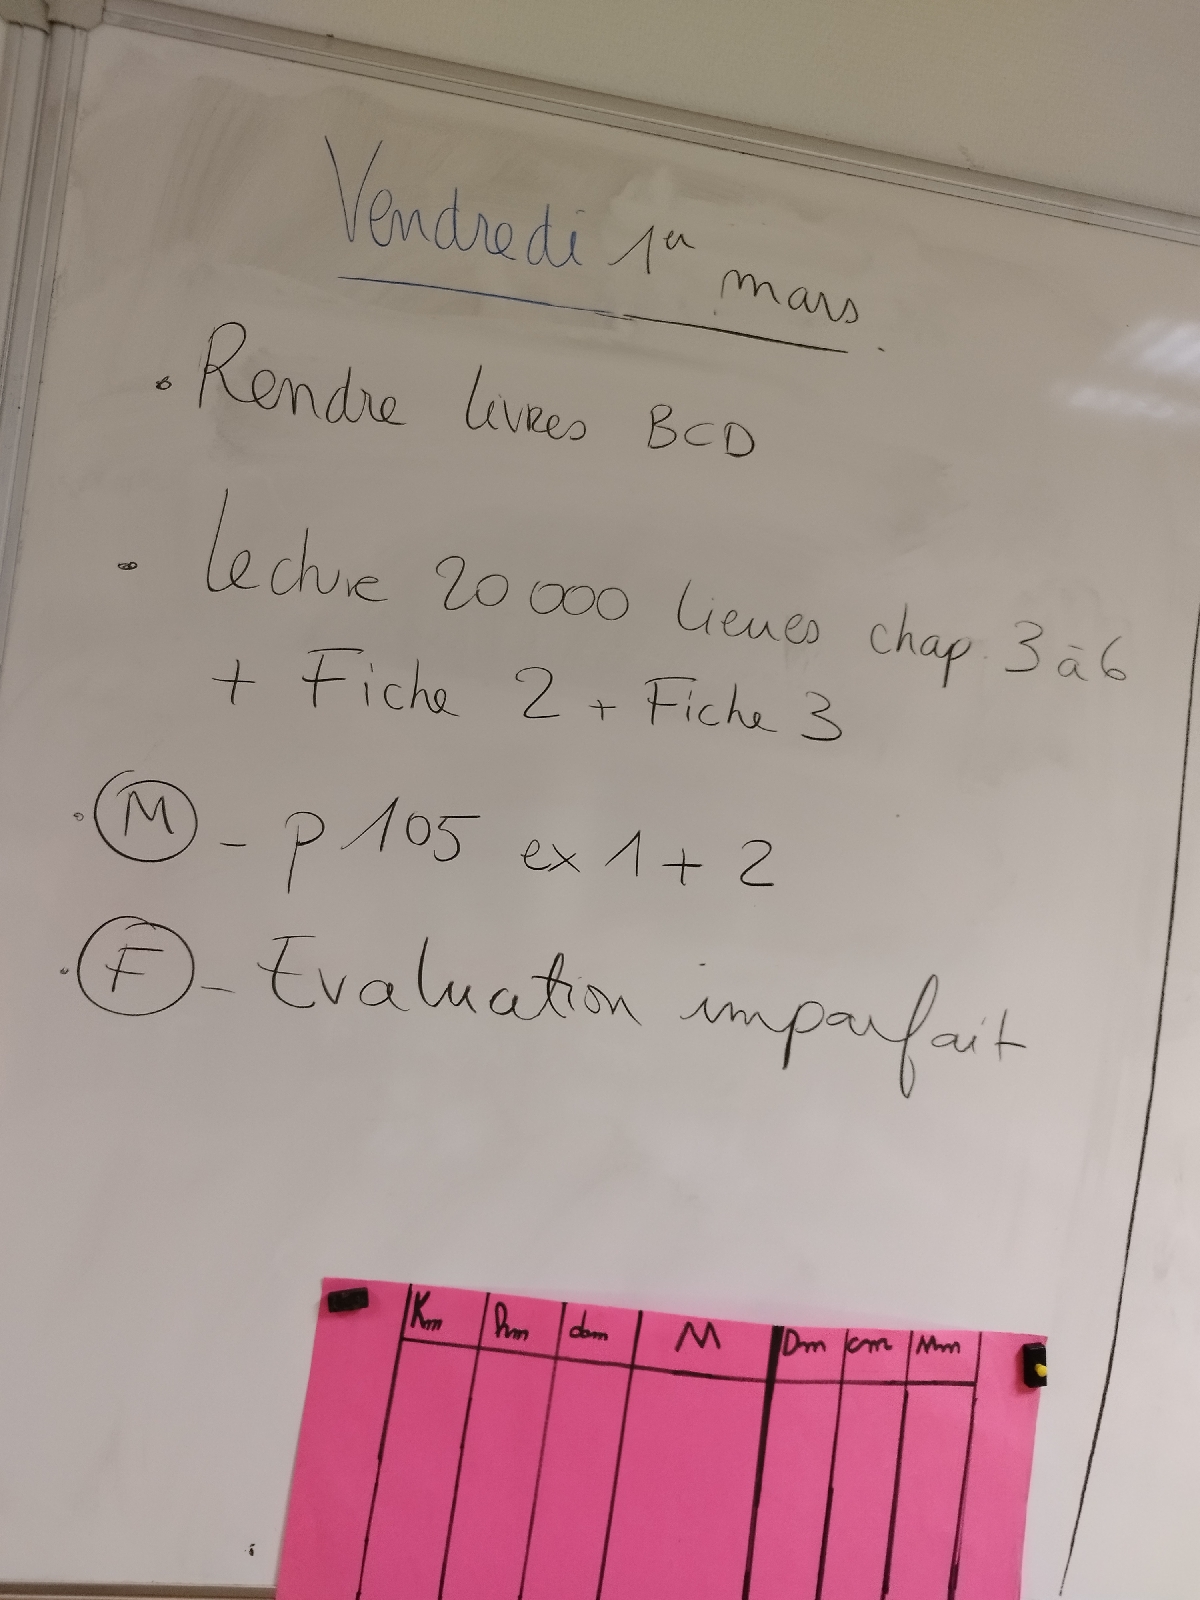 Vendredi 1er mars.
• Rendre livres BCD
• Lecture 20 000 lieues chap. 3 à 6
+ Fiche 2 + Fiche 3
• M - p 105 ex 1 + 2
• F - Evaluation imparfait
Km hm dam M Dm cm Mm